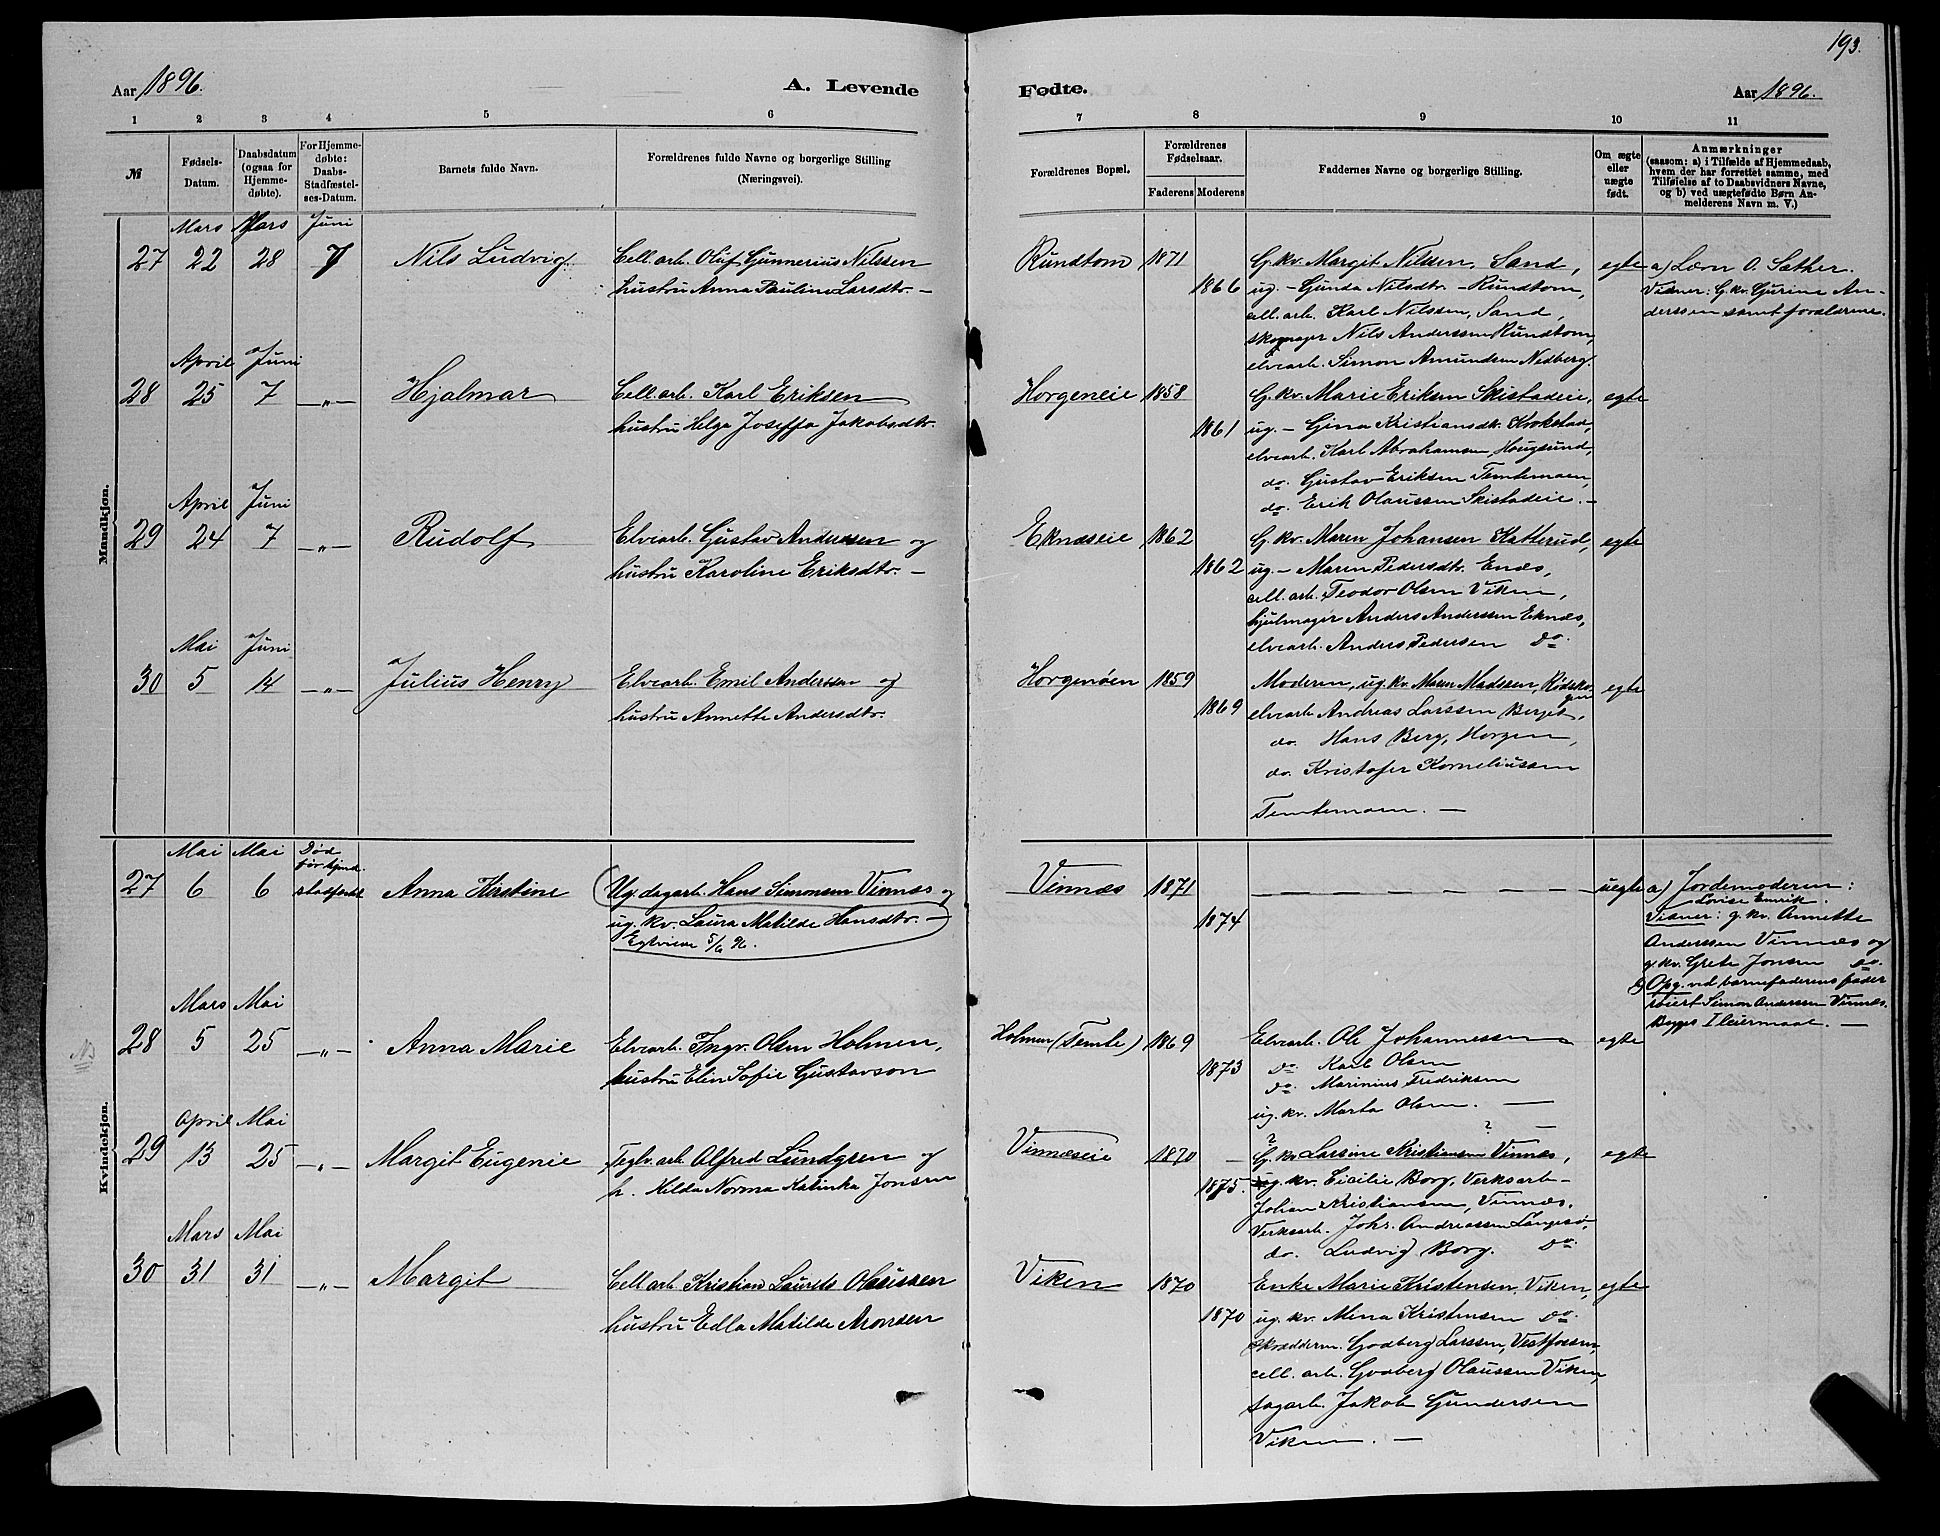 193.
Aar 1896.
A. Levende
Fødte.
Aar 1896.
1 2 3 4 5 6
7 8 9 10 11
№
Fødsels-
Datum.
Daabsdatum
(ogsaa for
Hjemme-
døbte).
For Hjemme-
døbte:
Daabs-
Stadfæstel-
ses-Datum.
Barnets fulde Navn.
Forældrenes fulde Navne og borgerlige Stilling
(Næringsvei).
Forældrenes Bopæl.
Forældrenes
Fødselsaar.
Faderens Moderens
Faddernes Navne og borgerlige Stilling.
Om ægte
eller
uægte
født.
Anmærkninger
(saasom: a) i Tilfælde af Hjemmedaab,
hvem der har forrettet samme, med
Tilføielse af to Daabsvidners Navne,
og b) ved uægtefødte Børn An-
melderens Navn m. V.)
Mandkjøn.
Mars Mars Juni
27 22 28 7 Nils Ludvig
Cell.arb. Oluf Gunnerius Nilssen
hustru Anna Pauline Larsdtr. –
Rundtom 1871
1866
G.kv. Margit Nilssen, Sand,
ug. – Gunda Nilsdtr. – Rundtom,
cell.arb. Karl Nilssen, Sand,
skomager Nils Anderssen Rundtom,
elvearb. Simon Amundsen Nedberg.
egte
a) Lærn O. Sæther.
Vidner: G.kv. Gurine An-
derssen samt forældrene.
April Juni
28 25 7 –„– Hjalmar
Cell.arb. Karl Eriksen
hustru Helga Joseffa Jakobsdtr.
Horgeneie 1858
1861
G.kv. Marie Eriksen Skistadeie,
ug. – Gina Kristiansdtr. Krokstad,
elvearb. Karl Abrahamsen, Hougsund,
do. Gustav Eriksen Temtemoen,
do. Erik Olaussen Skistadeie. –
egte
April Juni
29 24 7 –„– Rudolf
Elvearb. Gustav Andersen og
hustru Karoline Eriksdtr. –
Eknæseie 1862
1862
G.kv. Maren Johansen Katterud,
ug. – Maren Pedersdtr. Enæs,
cell.arb. Teodor Olsen Viken,
hjulmager Anders Anderssen Eknæs,
elvearb. Anders Pedersen do.
egte
Mai Juni
30 5 14 –„– Julius Henry
Elvearb. Emil Andersen og
hustru Annette Andersdtr.
Horgenøen 1859
1869
Moderen, ug.kv. Maren Madssen,
elvearb. Andreas Larssen Berget,
do. Hans Berg, Horgen,
do. Kristofer Korneliussen
Temtemoen. –
egte
Kvindekjøn.
Mai Mai Død
27 6 6 Anna Kirstine
Ug. dagarb. Hans Simonsen Vinnæs og
ug. kv. Laura Matilde Hansdtr. –
Egtviede 5/6 96.
Vinnæs 1871
1874
– – – – – – – –
uegte
a) Jordemoderen:
Lovise Emrik.
Vidner: g.kv. Annette
Anderssen Vinnæs og
g.kv. Grete Jonsen do.
b) Opg. ved barnefaderens fader
Simon Anderssen Vinnæs.
Begges I leiermaal. –
Mars Mai
28 5 25 –„– Anna Marie
Elvearb. Ingv. Olsen Holmen,
hustru Elin Sofie Gustavson
Holmen (Temte) 1869
1873
Elvearb. Ole Johannessen
do. Karl Olsen
do. Marinius Fredriksen
ug. kv. Marta Olsen. –
egte
April Mai
29 13 25 –„– Margit Eugenie
Teglv.arb. Alfred Lundgren og
h. Hilda Norma Katinka Jonsen
Vinnæseie 1870 –
1875.
G.kv. Larsine Kristiansen Vinnæs,
ug. kv. Cicilie Borg, Verksarb –
Johan Kristiansen, Vinnæs,
Verksarb. Johs. Andreassen Langesø,
do. Ludvig Borg. do.
egte
Mars Mai
30 31 31 –„– Margit
Cell.arb. Kristian Laurits Olaussen
hustru Edla Matilde Aronsen
Viken 1870
1870
Enke Marie Kristensen, Viken,
ug. kv. Mina Kristensen do.
skrædderm. Godberg Larssen, Vestfossen,
cell. arb. Godberg Olaussen Viken,
sagarb. Jakob Gundersen
Viken. –
egte